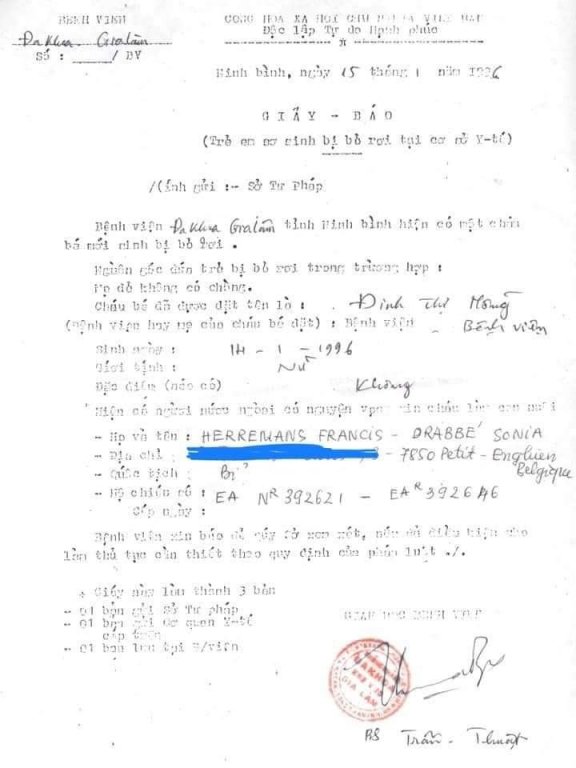 BỆNH VIỆN
Đa khoa Gia Lâm
Số : ______/ BV
CỘNG HÒA XÃ HỘI CHỦ NGHĨA VIỆT NAM
Độc lập Tự do Hạnh phúc
Ninh bình, ngày 15 tháng 1 năm 1996
GIẤY - BÁO
(Trẻ em sơ sinh bị bỏ rơi tại cơ sở Y-tế)
/(ính gửi :- Sở Tư Pháp
Bệnh viện Đa khoa Gia Lâm tỉnh Ninh bình hiện có một cháu
bé mới sinh bị bỏ rơi .
Nguồn gốc đứa trẻ bị bỏ rơi trong trường hợp :
Mẹ đẻ không có chồng.
Cháu bé đã được đặt tên là : Đinh Thị Hồng
(Bệnh viện hay mẹ của cháu bé đặt) : Bệnh viện Bệnh viện
Sinh ngày : 14 - 1 - 1996
Giới tính : Nữ
Đặc điểm (nếu có) Không
Hiện có người nước ngoài có nguyện vọng xin cháu làm con nuôi
- Họ và tên : HERREMANS FRANCIS - DRABBÉ SONIA
- Địa chỉ : - 7850 Petit - Enghien Belgique
- Quốc tịch : Bỉ
- Hộ chiếu số : EA NR 392621 - EA R 392646
Cấp ngày :
Bệnh viện xin báo để quý Sở xem xét, nếu đủ điều kiện cho
làm thủ tục cần thiết theo quy định của pháp luật ./.
* Giấy này làm thành 3 bản
- 01 bản gửi Sở Tư pháp
- 01 bản gửi Cơ quan Y-tế
cấp trên
- 01 bản lưu tại B/viện
GIÁM ĐỐC BỆNH VIỆN
GIA LÂM
BS Trần - Thuật